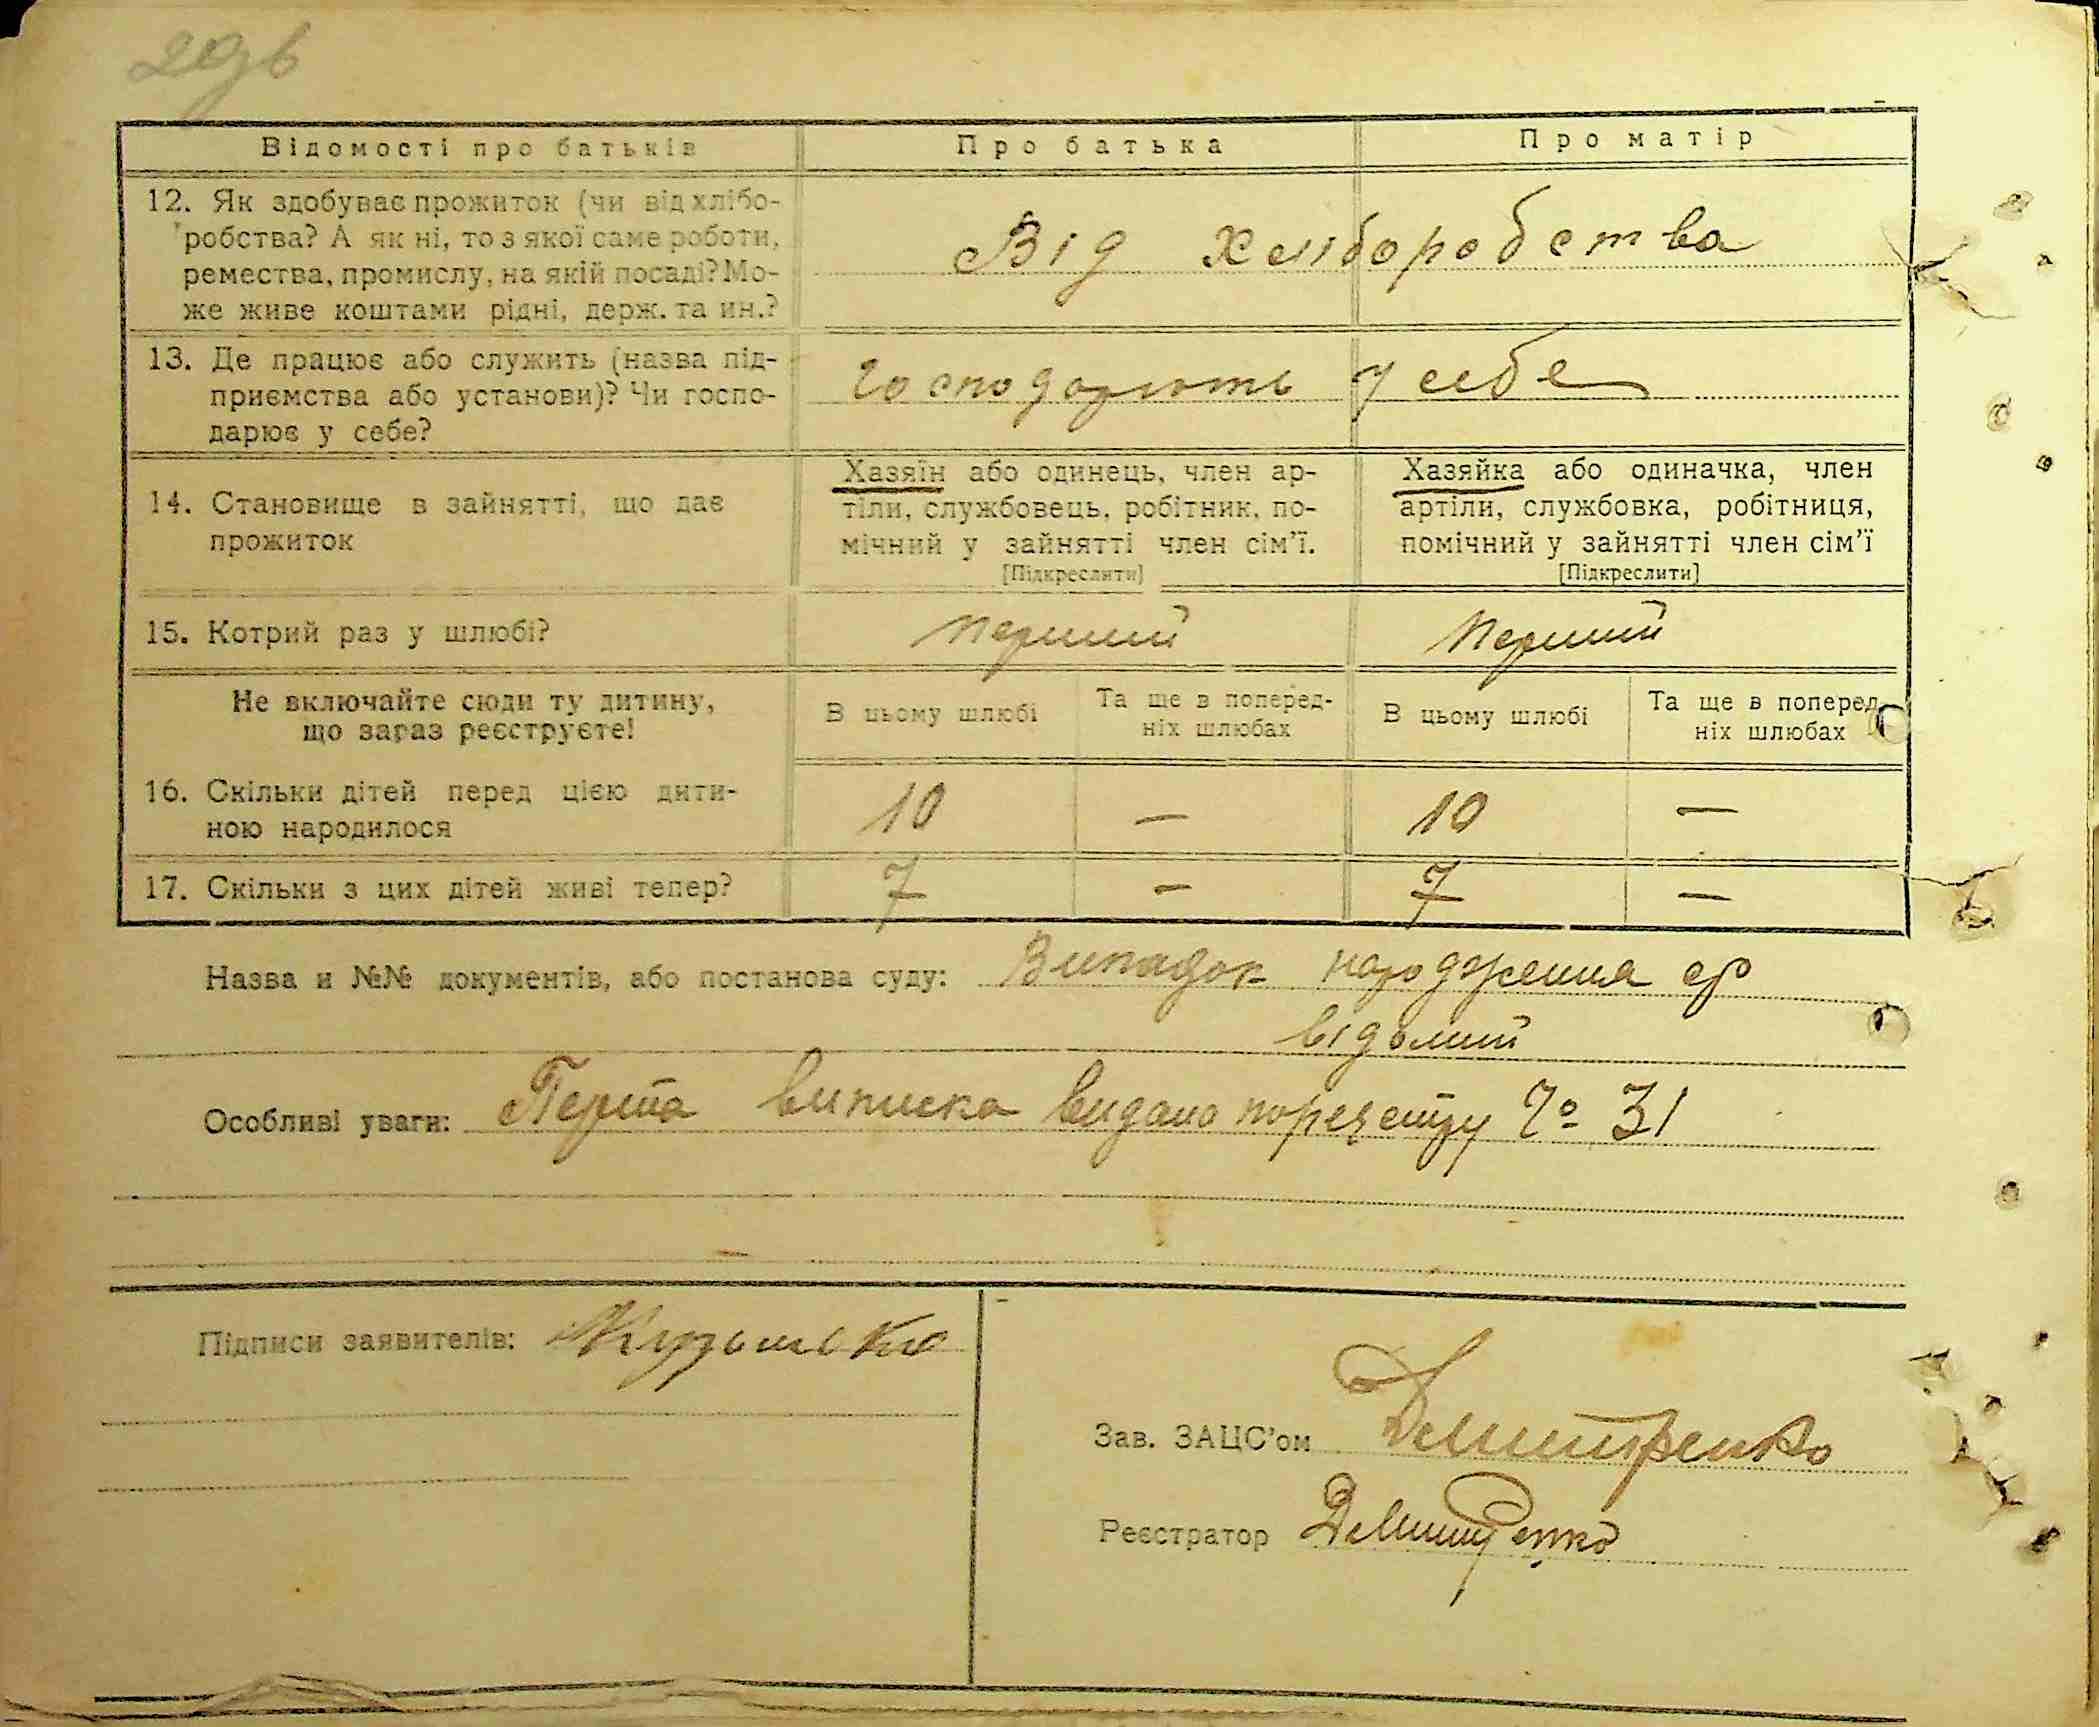 29зв
Відомості про батьків Про батька Про матір
12. Як здобуває прожиток (чи від хлібо-
робства? А як ні, то з якої саме роботи,
ремества, промислу, на якій посаді? Мо-
же живе коштами рідні, держ. та ин.?
Від хліборобства
13. Де працює або служить (назва під-
приємства або установи)? Чи госпо-
дарює у себе?
Господарють у себе
14. Становище в зайнятті, що дає
прожиток
Хазяїн або одинець, член ар-
тіли, службовець, робітник, по-
мічний у зайнятті член сім'ї.
[Підкреслити]
Хазяйка або одиначка, член
артіли, службовка, робітниця,
помічний у зайнятті член сім'ї
[Підкреслити]
15. Котрий раз у шлюбі? перший перший
Не включайте сюди ту дитину,
що зараз реєструєте!
В цьому шлюбі Та ще в поперед-
ніх шлюбах
В цьому шлюбі Та ще в поперед
ніх шлюбах
16. Скільки дітей перед цією дити-
ною народилося
10 — 10 —
17. Скільки з цих дітей живі тепер? 7 — 7 —
Назва и №№ документів, або постанова суду: Випадок народження
відомий
Особливі уваги: Перша виписка видана по реєстру № 31
Підписи заявителів:
Зав. ЗАЦС'ом Дмитренко
Реєстратор Дмитренко